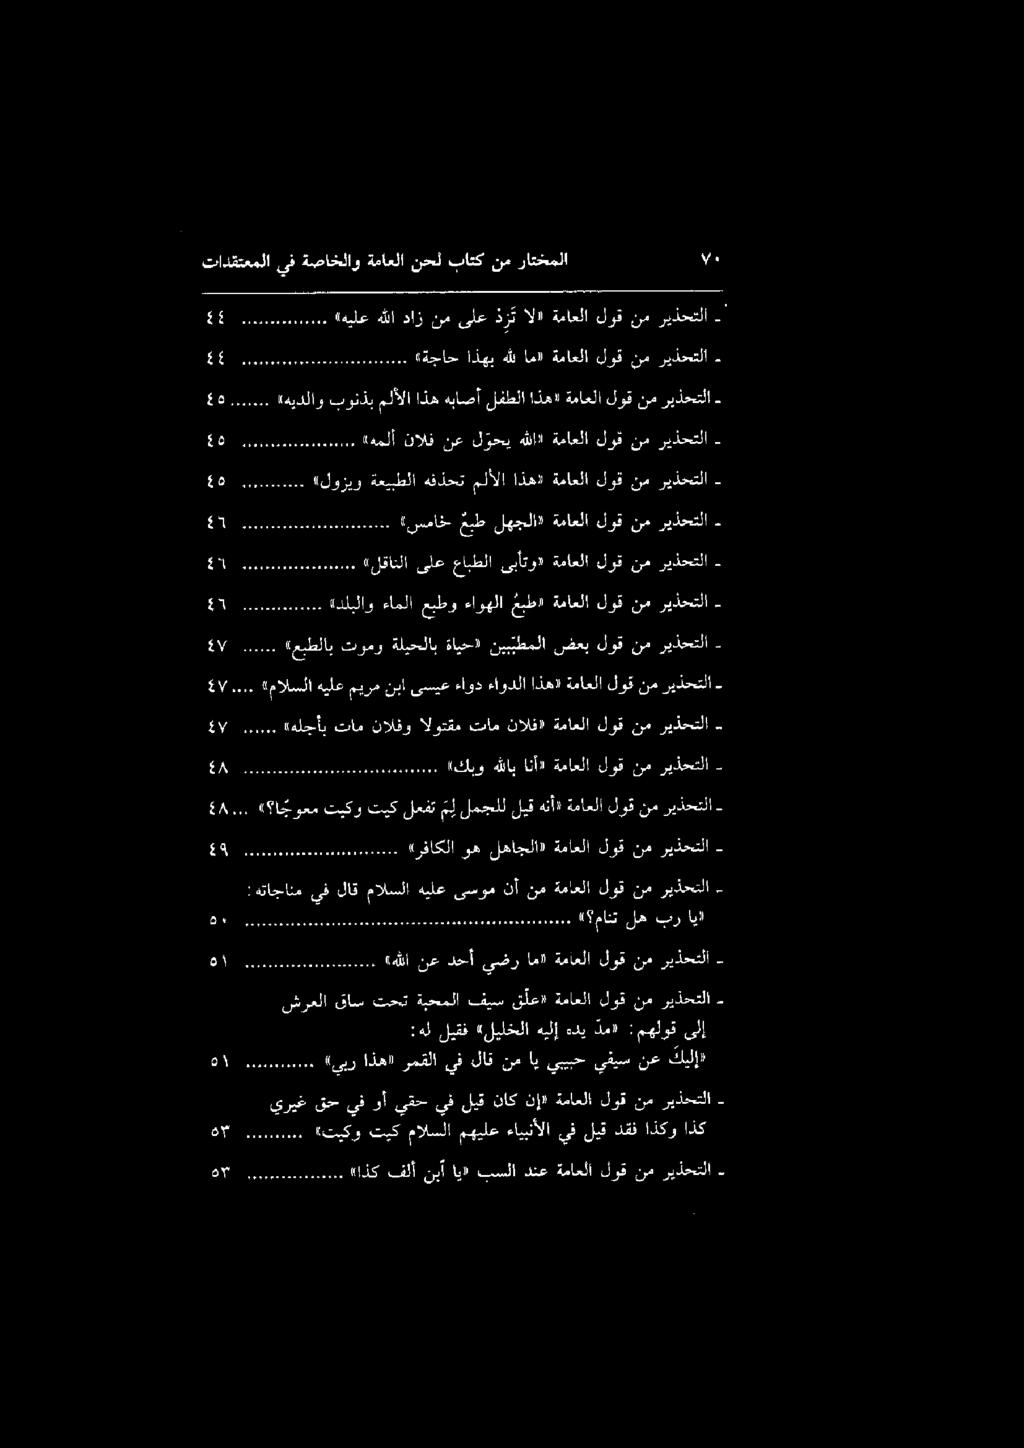 ٧٠ المختار من كتاب لحن العامة والخاصة في المعتقدات
ـ التحذير من قول العامة «لا تَزِدْ على من زاد الله عليه» ............... ٤٤
ـ التحذير من قول العامة «ما لله بهذا حاجة» ............................. ٤٤
ـ التحذير من قول العامة «هذا الطفل أصابه هذا الألم بذنوب والديه» ....... ٤٥
ـ التحذير من قول العامة «الله يحوّل عن فلان ألمه» .................... ٤٥
ـ التحذير من قول العامة «هذا الألم تحذفه الطبيعة ويزول» ............ ٤٥
ـ التحذير من قول العامة «الجهل طبعٌ خامس» ........................... ٤٦
ـ التحذير من قول العامة «وتأبى الطباع على الناقل» .................... ٤٦
ـ التحذير من قول العامة «طبعُ الهواء وطبع الماء والبلد» .............. ٤٦
ـ التحذير من قول بعض المطبّبين «حياة بالحيلة وموت بالطبع» ...... ٤٧
ـ التحذير من قول العامة «هذا الدواء دواء عيسى ابن مريم عليه السلام» .... ٤٧
ـ التحذير من قول العامة «فلان مات مقتولا وفلان مات بأجله» ...... ٤٧
ـ التحذير من قول العامة «أنا بالله وبك» ................................. ٤٨
ـ التحذير من قول العامة «أنه قيل للجمل لِمَ تفعل كيت وكيت معوجًا؟» ... ٤٨
ـ التحذير من قول العامة «الجاهل هو الكافر» ........................... ٤٩
ـ التحذير من قول العامة من أن موسى عليه السلام قال في مناجاته:
«يا رب هل تنام؟» ................................................... ٥٠
ـ التحذير من قول العامة «ما رضي أحد عن الله» ...................... ٥١
ـ التحذير من قول العامة «علّق سيف المحبة تحت ساق العرش
إلى قولهم: «مدّ يده إليه الخليل» فقيل له:
«إليكَ عن سيفي حبيبي يا من قال في القمر «هذا ربي» ............ ٥١
ـ التحذير من قول العامة «إن كان قيل في حقي أو في حق غيري
كذا وكذا فقد قيل في الأنبياء عليهم السلام كيت وكيت» .......... ٥٣
ـ التحذير من قول العامة عند السب «يا ابن ألف كذا» ................ ٥٣